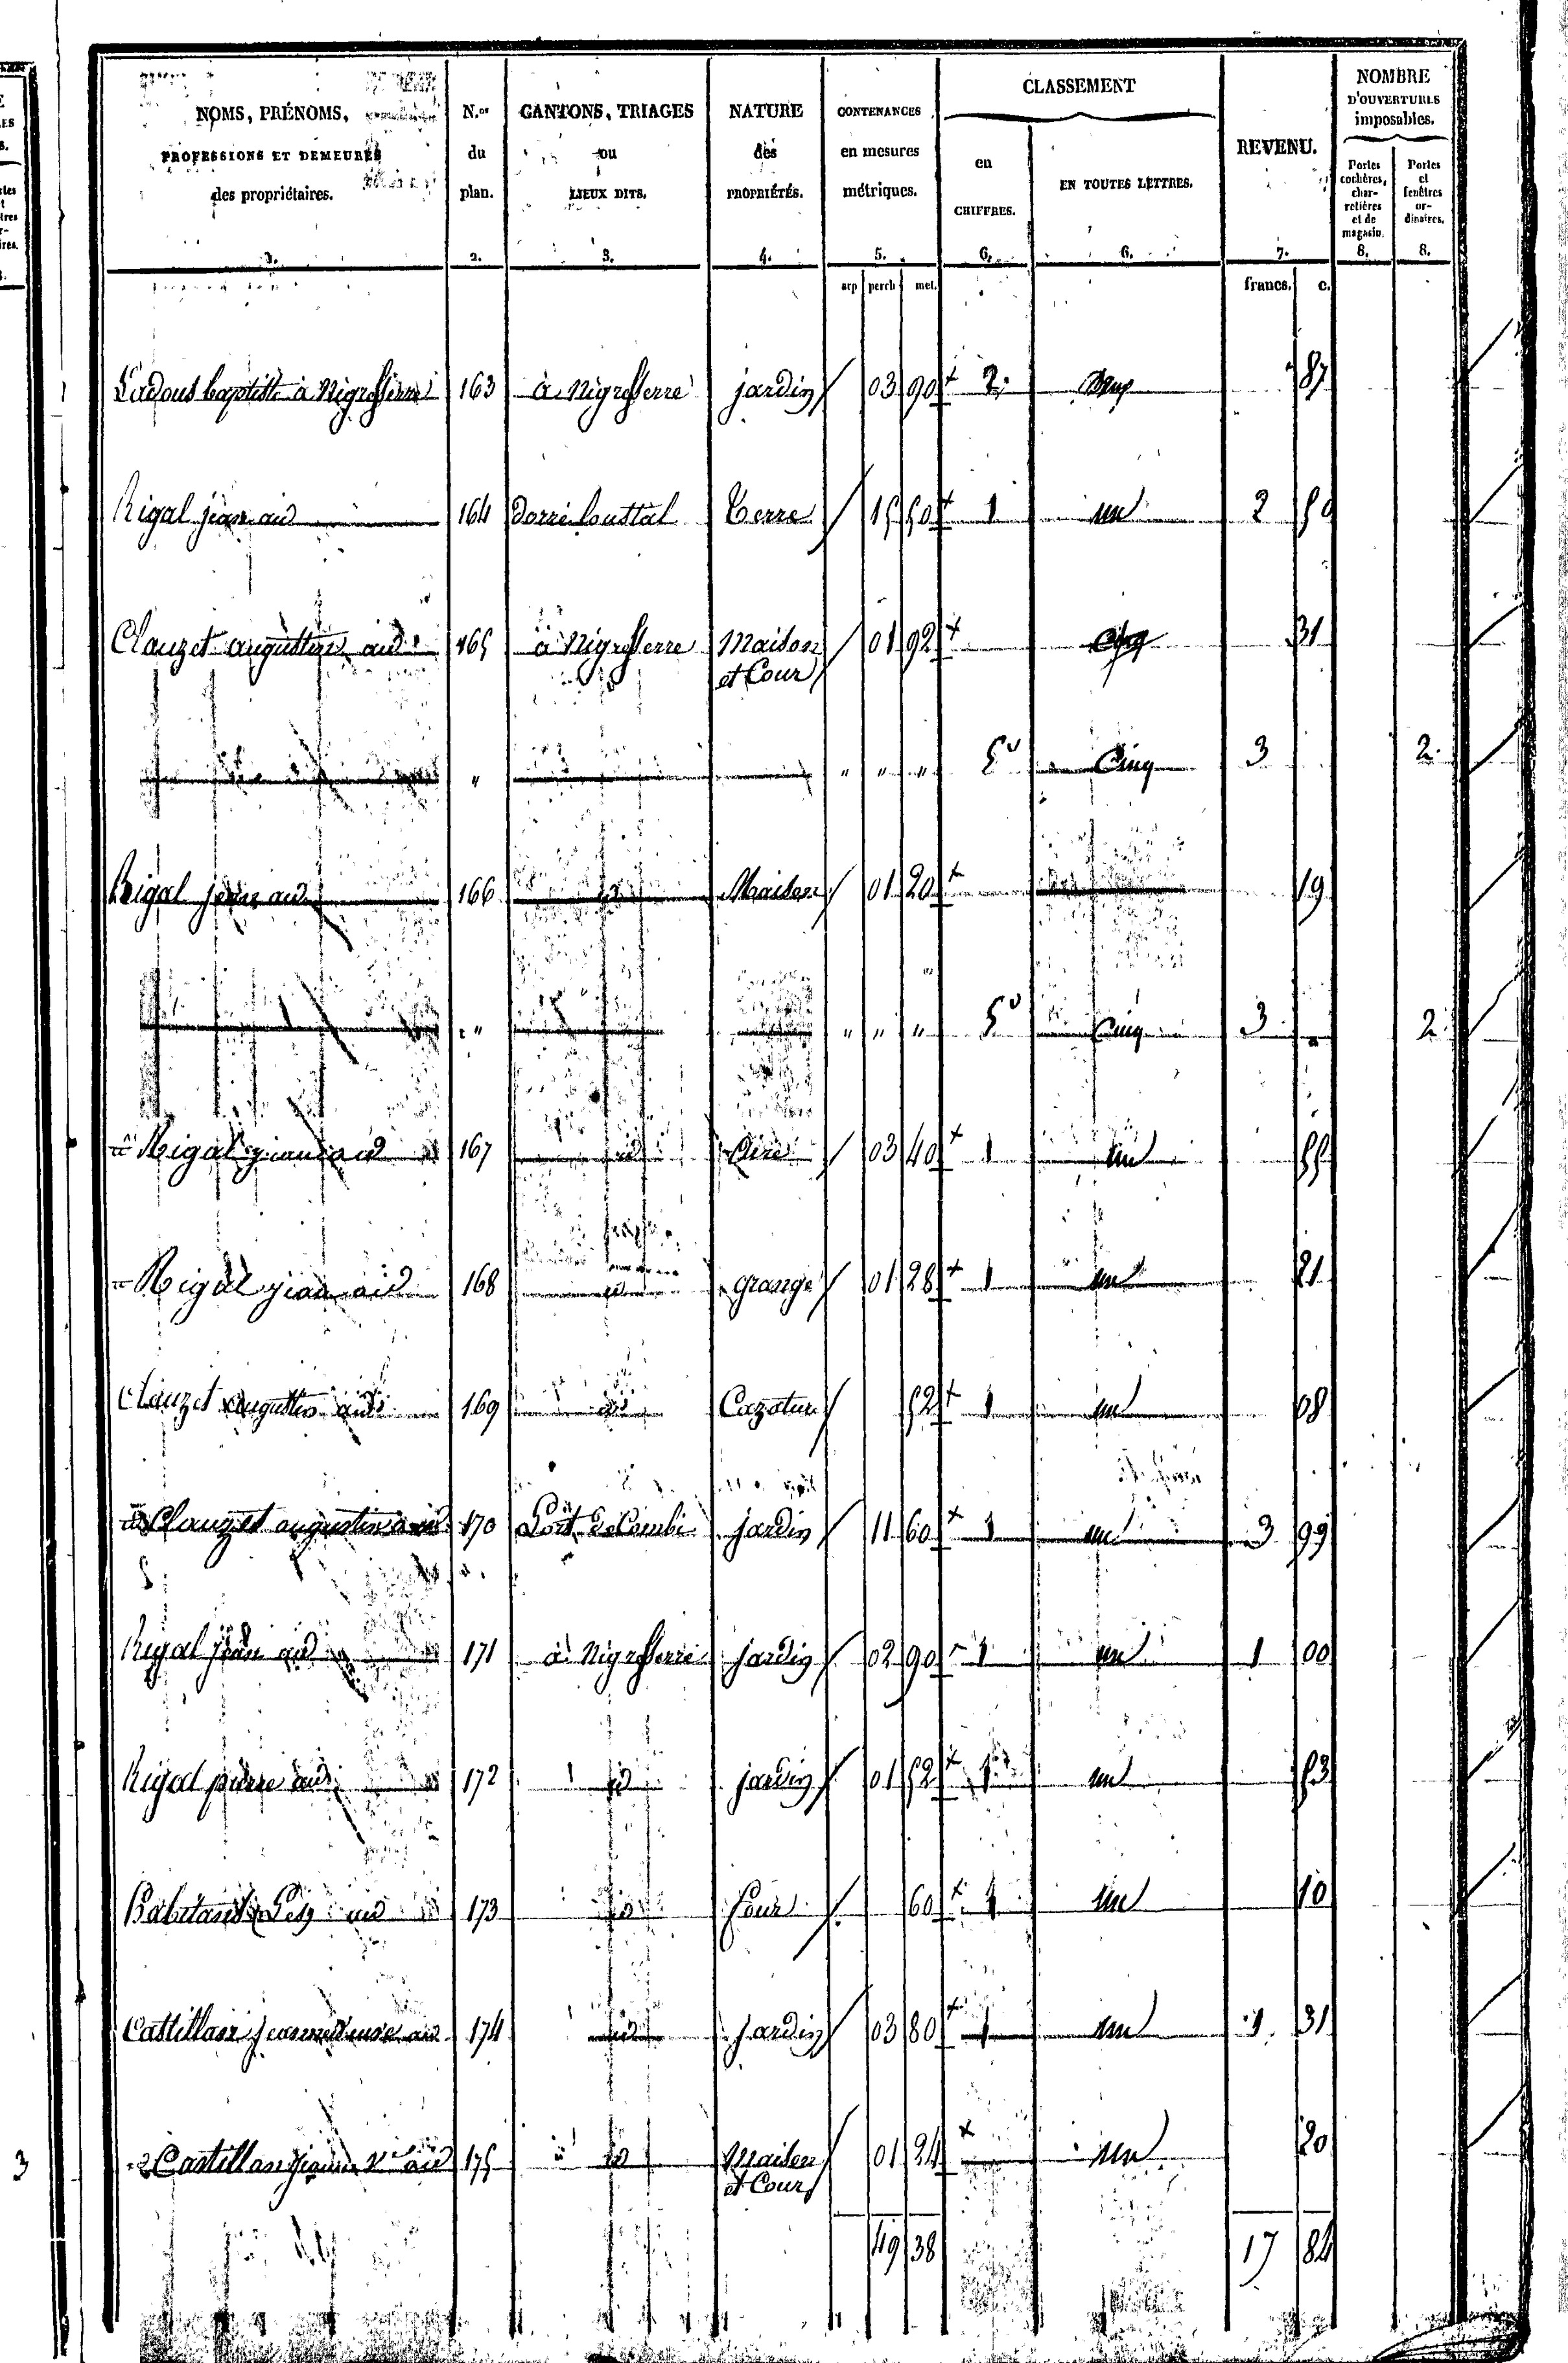 NOMS, PRÉNOMS, N.os CANTONS, TRIAGES NATURE CONTENANCES CLASSEMENT REVENU. NOMBRE
PROFESSIONS ET DEMEURES du ou des en mesures en EN TOUTES LETTRES. D'OUVERTURES
des propriétaires. plan. LIEUX DITS. PROPRIÉTÉS. métriques. CHIFFRES. imposables.
Portes cochères, charretières et de magasin. Portes et fenêtres ordinaires.
1. 2. 3. 4. 5. 6. 6. 7. 8. 8.
arp perch met. francs. c.
Ladous baptiste à Nigresserre 163 à Nigresserre jardin 03 90 2 87
Rigal jean aud 164 Terre 15 50 1 un 2 50
Clauzet augustin aud 165 à Nigresserre Maison 01 92 31
et Cour
" " " " 5e Cinq 3 2
Rigal jean aud 166 id Maison 01 20 19
" " " " 5e Cinq 3 2
Rigal jean aud 167 id aire 03 40 1 un 55
Rigal jean aud 168 id grange 01 28 1 un 21
Clauzet augustin aud 169 id 52 1 un 08
Clauzet augustin aud 170 jardin 11 60 1 un 3 99
Rigal jean aud 171 à Nigresserre jardin 02 90 1 un 1 00
Rigal pierre aud 172 id jardin 01 52 1 un 53
aud 173 id 60 1 un 10
Castillan aud 174 id jardin 03 80 1 un 1 31
3 Castillan aud 175 id Maison 01 24 un 20
et Cour
49 38 17 84